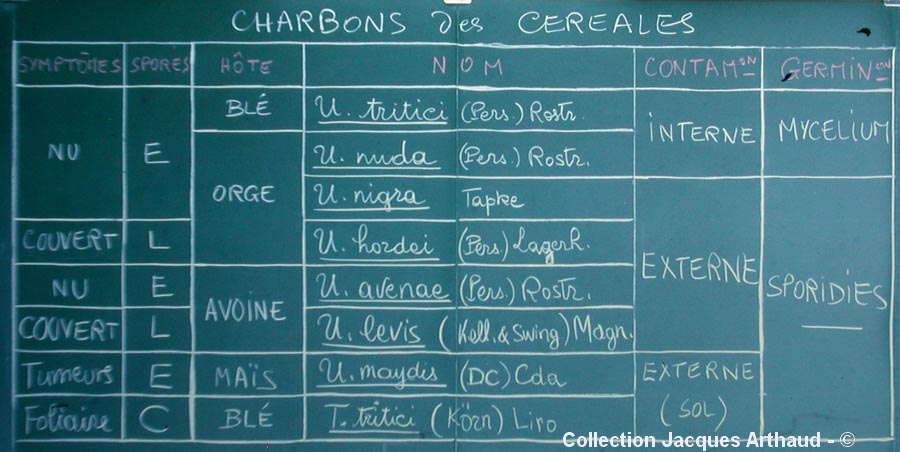 CHARBONS des CEREALES
SYMPTÔMES SPORES HÔTE NOM CONTAMON GERMINON
NU E BLÉ U. tritici (Pers.) Rostr. INTERNE MYCELIUM
ORGE U. nuda (Pers.) Rostr.
U. nigra Tapke EXTERNE SPORIDIES
COUVERT L U. hordei (Pers.) Lagerh.
NU E AVOINE U. avenae (Pers.) Rostr.
COUVERT L U. levis (Kell. & Swing) Magn.
Tumeurs E MAÏS U. maydis (DC) Cda EXTERNE (SOL)
Foliaire C BLÉ T. tritici (Körn) Liro
Collection Jacques Arthaud - ©